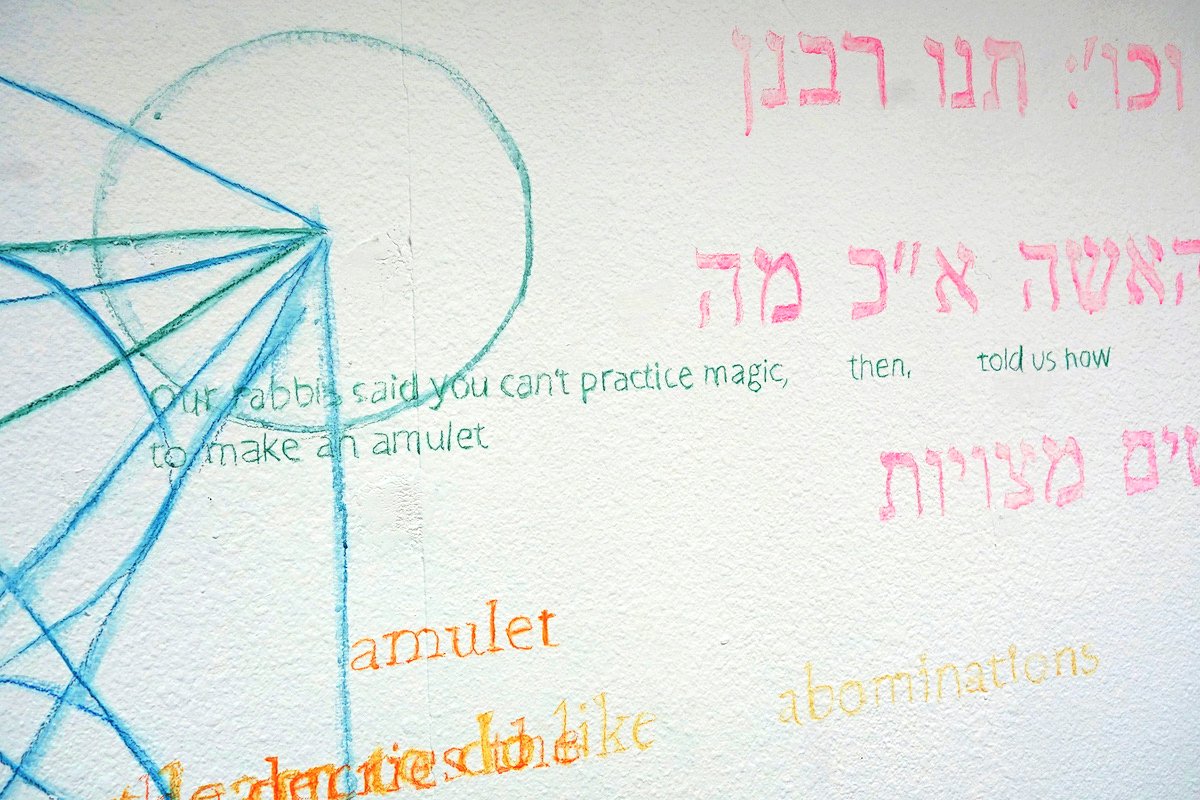 וכו': תנו רבנן
האשה א"כ מה
Our rabbis said you can't practice magic, then, told us how
to make an amulet
מצויות
amulet
abominations
like